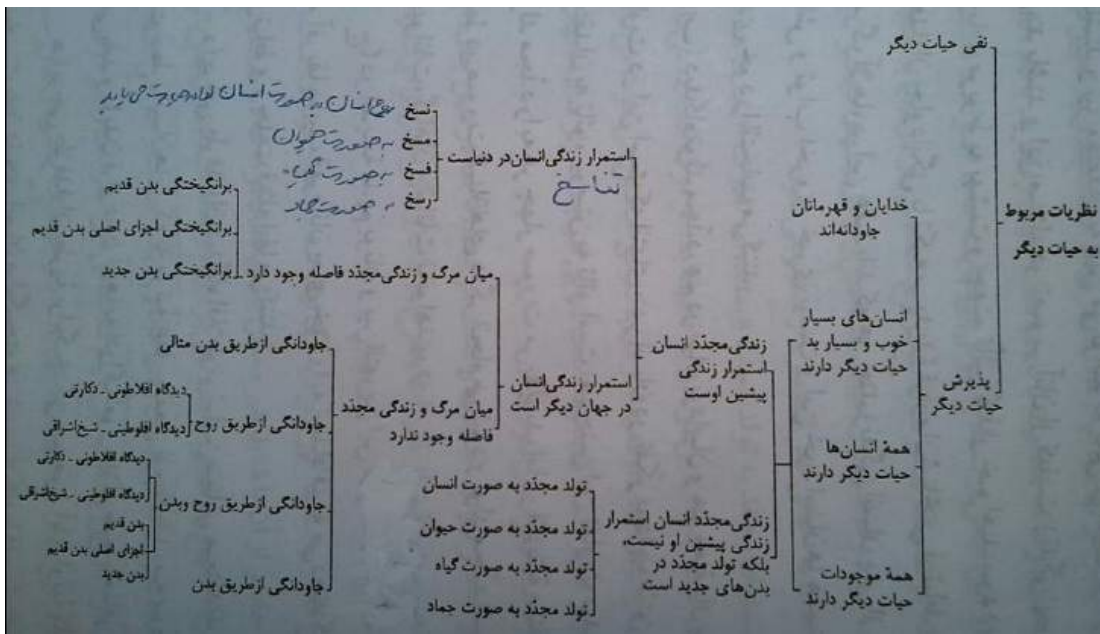 نظریات مربوط
به حیات دیگر
نفی حیات دیگر
پذیرش
حیات دیگر
خدایان و قهرمانان
جاودانه‌اند
انسان‌های بسیار
خوب و بسیار بد
حیات دیگر دارند
همهٔ انسان‌ها
حیات دیگر دارند
همهٔ موجودات
حیات دیگر دارند
زندگی مجدّد انسان
استمرار زندگی
پیشین اوست
زندگی مجدّد انسان استمرار
زندگی پیشین او نیست،
بلکه تولد مجدّد در
بدن‌های جدید است
استمرار زندگی انسان در دنیاست
تناسخ
استمرار زندگی انسان
در جهان دیگر است
نسخ انسان به صورت انسان
مسخ به صورت حیوان
فسخ به صورت گیاه
رسخ به صورت جماد
میان مرگ و زندگی مجدّد فاصله وجود دارد
برانگیختگی بدن قدیم
برانگیختگی اجزای اصلی بدن قدیم
برانگیختگی بدن جدید
میان مرگ و زندگی مجدّد
فاصله وجود ندارد
جاودانگی از طریق بدن مثالی
جاودانگی از طریق روح
دیدگاه افلاطونی ـ دکارتی
دیدگاه افلوطینی ـ شیخ‌اشراقی
جاودانگی از طریق روح وبدن
دیدگاه افلاطونی ـ دکارتی
دیدگاه افلوطینی ـ شیخ‌اشراقی
بدن قدیم
اجزای اصلی بدن قدیم
بدن جدید
جاودانگی از طریق بدن
تولد مجدّد به صورت انسان
تولد مجدّد به صورت حیوان
تولد مجدّد به صورت گیاه
تولد مجدّد به صورت جماد